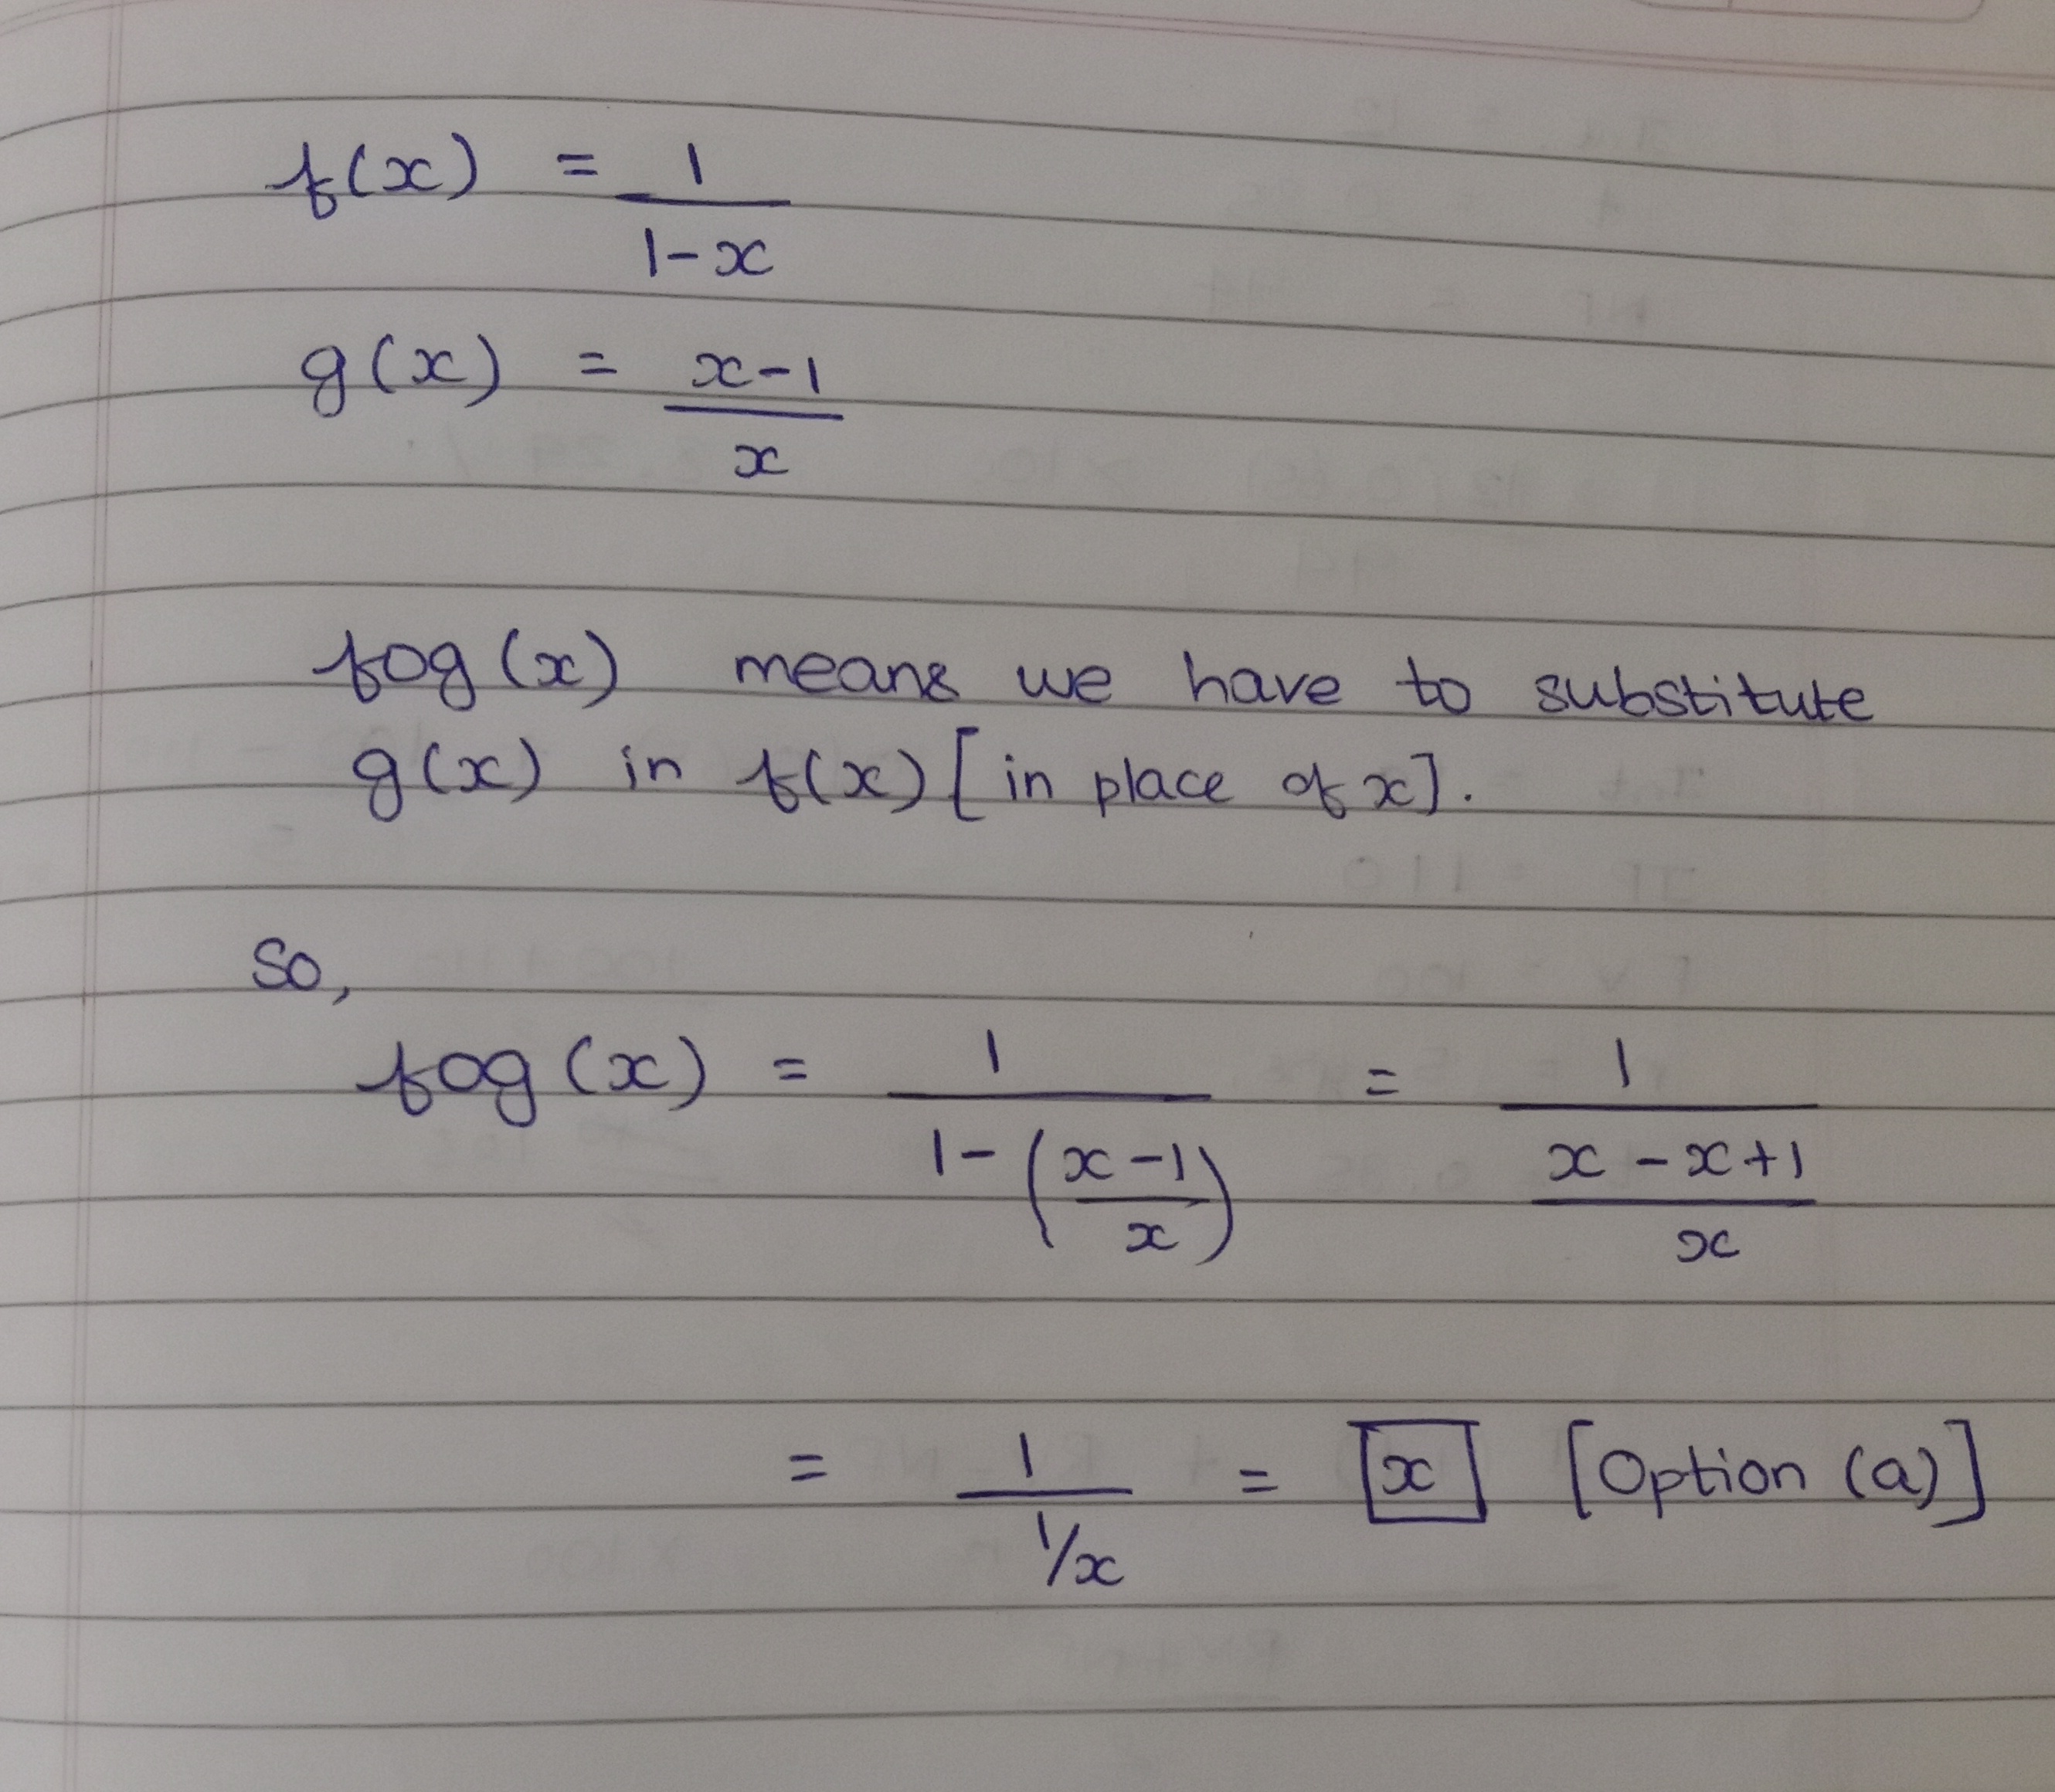 f(x) = 1/(1-x)
g(x) = (x-1)/x
fog(x) means we have to substitute
g(x) in f(x) [in place of x].
So,
fog(x) = 1/(1-((x-1)/x)) = 1/((x-x+1)/x)
= 1/(1/x) = x [Option (a)]